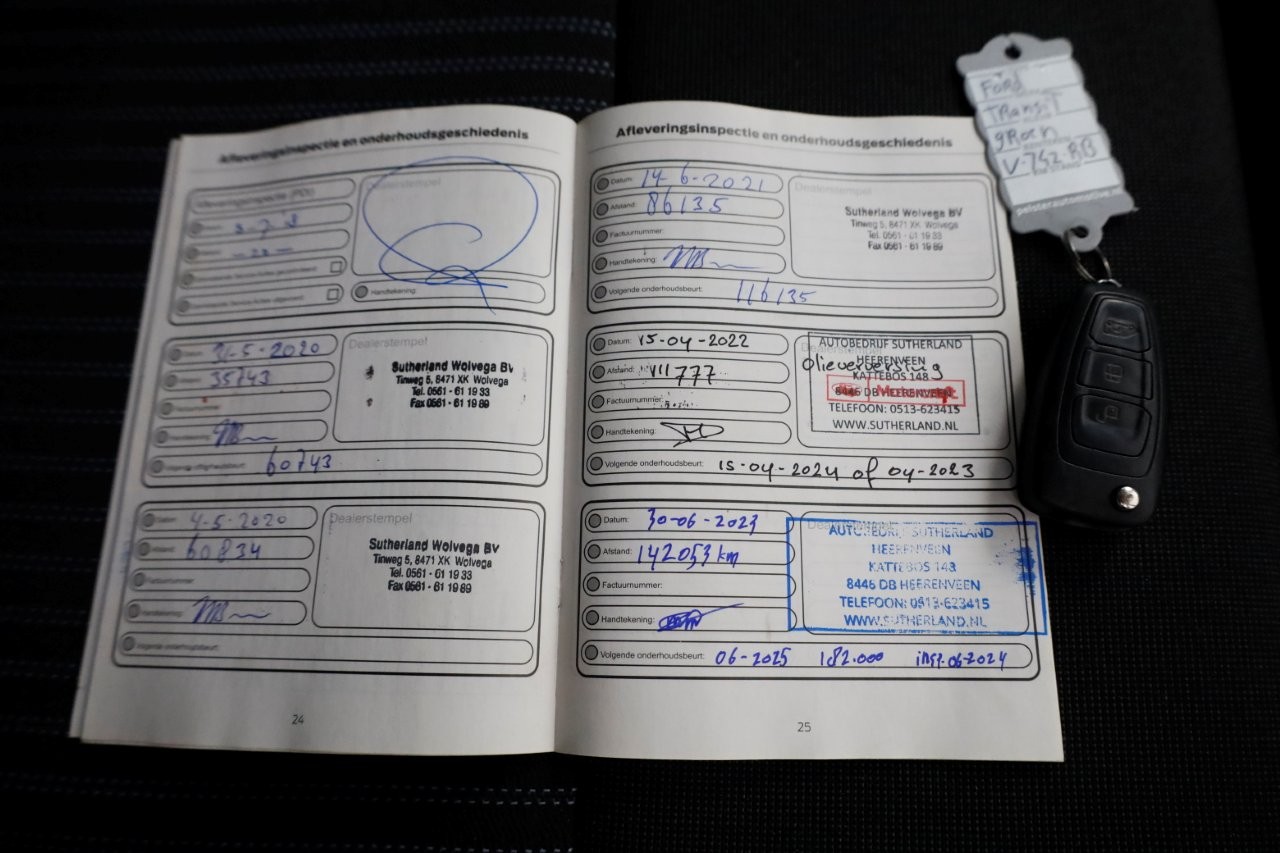 Afleveringsinspectie en onderhoudsgeschiedenis
Dealerstempel
Handtekening:
Datum:
-5-2020
35743
Dealerstempel
Sutherland Wolvega BV
Tinweg 5, 8471 XK Wolvega
Tel. 0561 - 61 19 33
Fax 0561 - 61 19 89
Volgende onderhoudsbeurt: 60743
Datum: 4-5-2020
Afstand: 60834
Factuurnummer:
Handtekening:
Dealerstempel
Sutherland Wolvega BV
Tinweg 5, 8471 XK Wolvega
Tel. 0561 - 61 19 33
Fax 0561 - 61 19 89
Volgende onderhoudsbeurt:
24
Afleveringsinspectie en onderhoudsgeschiedenis
Datum: 14-6-2021
Afstand: 86135
Factuurnummer:
Handtekening:
Dealerstempel
Sutherland Wolvega BV
Tinweg 5, 8471 XK Wolvega
Tel. 0561 - 61 19 33
Fax 0561 - 61 19 89
Volgende onderhoudsbeurt: 116135
Datum: 15-04-2022
Afstand: 111777
Factuurnummer:
Handtekening:
AUTOBEDRIJF SUTHERLAND
HEERENVEEN
olieverversing
KATTEBOS 148
8446 DB HEERENVEEN
TELEFOON: 0513-623415
WWW.SUTHERLAND.NL
Volgende onderhoudsbeurt: 15-04-2024 of 04-2023
Datum: 30-06-2023
Afstand: 142053 km
Factuurnummer:
Handtekening:
AUTOBEDRIJF SUTHERLAND
HEERENVEEN
KATTEBOS 148
8446 DB HEERENVEEN
TELEFOON: 0513-623415
WWW.SUTHERLAND.NL
Volgende onderhoudsbeurt: 06-2025 182.000 insp. 06-2024
25
Ford
Transit
groen
V-742-RB